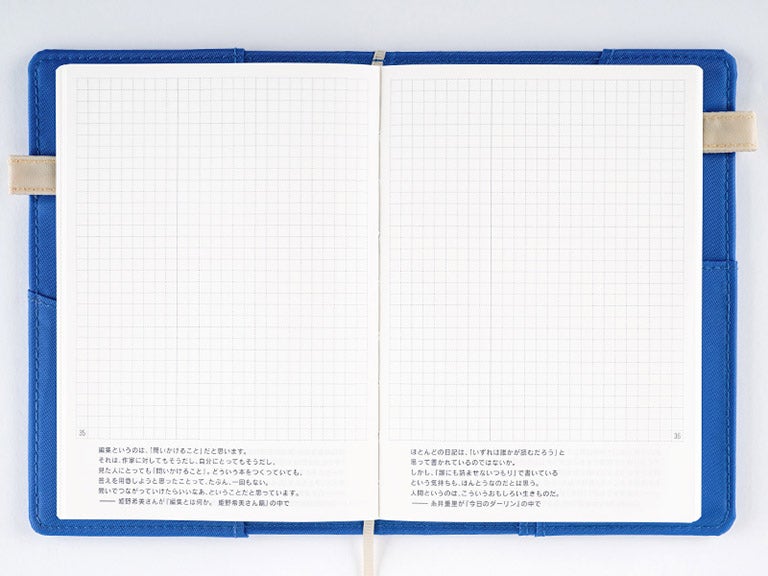 35
編集というのは、「問いかけること」だと思います。
それは、作家に対してもそうだし、自分にとってもそうだし、
見た人にとっても「問いかけること」。どういう本をつくっていても、
答えを用意しようと思ったことって、たぶん、一回もない。
問いでつながっていけたらいいなあ、ということだと思っています。
—— 姫野希美さんが『編集とは何か。 姫野希美さん扁』の中で
36
ほとんどの日記は、「いずれは誰かが読むだろう」と
思って書かれているのではないか。
しかし、「誰にも読ませないつもり」で書いている
という気持ちも、ほんとうなのだとは思う。
人間というのは、こういうおもしろい生きものだ。
—— 糸井重里が『今日のダーリン』の中で